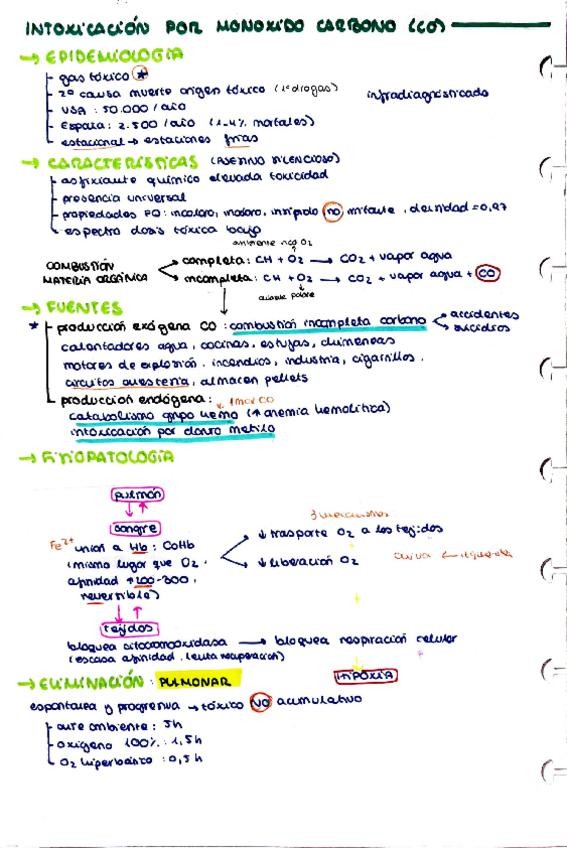 INTOXICACIÓN POR MONOXIDO CARBONO (CO)
→ EPIDEMIOLOGIA
gas tóxico *
2ª causa muerte origen tóxico (1ª drogas) infradiagnosticado
USA : 50.000 / año
España : 2.500 / año (1-4% mortales)
estacional → estaciones frias
→ CARACTERÍSTICAS (ASESINO SILENCIOSO)
asfixiante químico elevada toxicidad
presencia universal
propiedades FQ : incoloro, inodoro, insípido NO irritante, densidad = 0,97
espectro dosis tóxica bajo
ambiente rico O2
COMBUSTIÓN MATERIA ORGÁNICA
completa : CH + O2 → CO2 + vapor agua
incompleta : CH + O2 → CO2 + vapor agua + CO
ambiente pobre
→ FUENTES
* producción exógena CO : combustión incompleta carbono < accidentes
suicidios
calentadores agua, cocinas, estufas, chimeneas
motores de explosión, incendios, industria, cigarrillos,
circuitos anestesia, almacen pellets
producción endógena :
catabolismo grupo hemo (↑ anemia hemolítica)
intoxicación por cloruro metilo
→ FISIOPATOLOGÍA
pulmón
sangre
3 mecanismos
Fe2+ unión a Hb : COHb
(mismo lugar que O2,
afinidad ↑ 200-300,
reversible)
↓ trasporte O2 a los tejidos
↓ liberación O2 curva ← izquierda
tejidos
bloquea citocromooxidasa → bloquea respiración celular
(escasa afinidad, lenta recuperación)
HIPOXIA
→ ELIMINACIÓN : PULMONAR
espontanea y progresiva → tóxico NO acumulativo
aire ambiente : 5h
oxigeno 100% : 1,5h
O2 hiperbárico : 0,5h